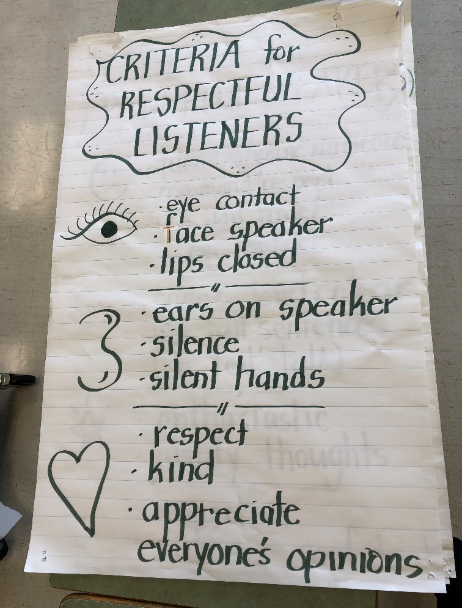 CRITERIA for
RESPECTFUL
LISTENERS
· eye contact
· face speaker
· lips closed
· ears on speaker
· silence
· silent hands
· respect
· kind
· appreciate
everyone's opinions